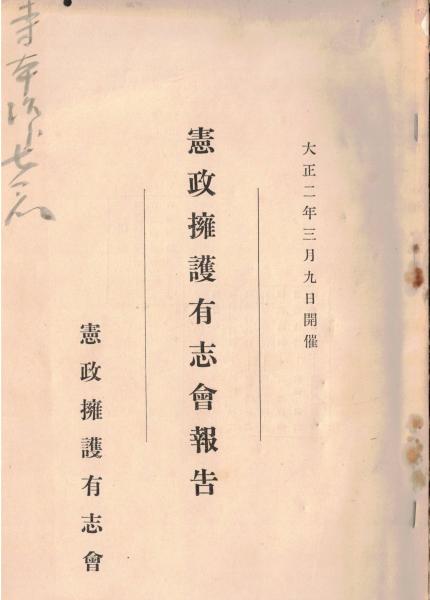 大正二年三月九日開催
憲政擁護有志會報告
憲政擁護有志會